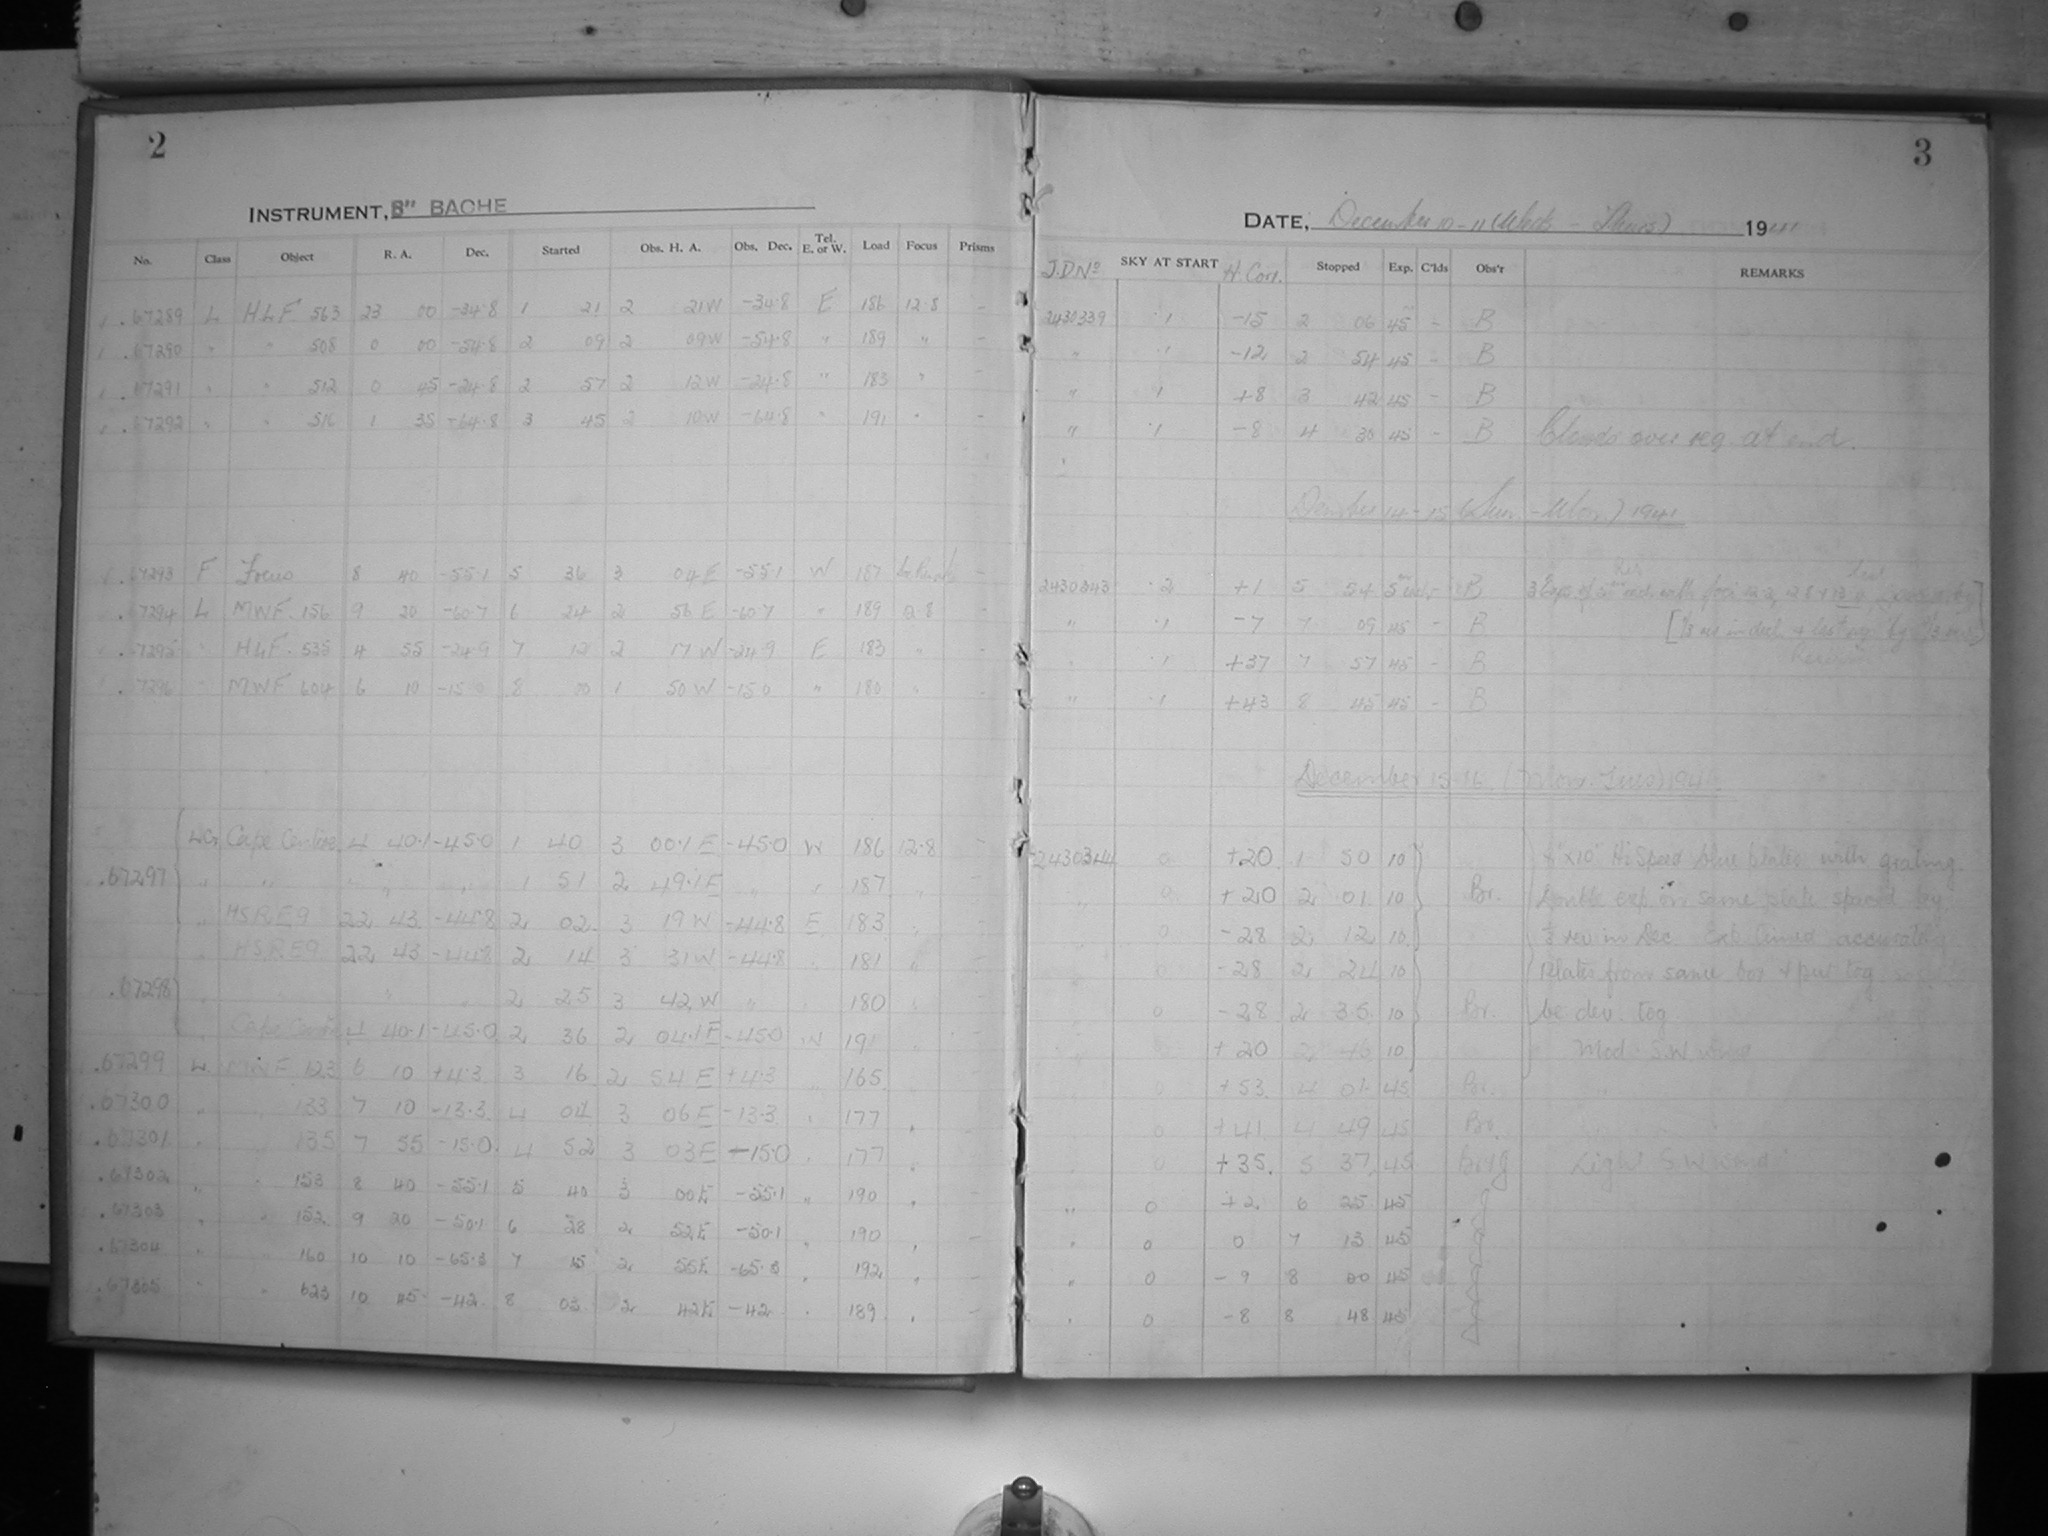 2
INSTRUMENT, 8" BACHE
No. Class Object R. A. Dec. Started Obs. H. A. Obs. Dec. Tel. E. or W. Load Focus Prisms
.67289 L HLF 563 23 00 -34.8 1 21 2 21W -34.8 E 186 12.8 -
.67290 " " 508 0 00 -54.8 2 09 2 09W -54.8 " 189 " -
.67291 " " 512 0 45 -24.8 2 57 2 12W -24.8 " 183 " -
.67292 " " 516 1 35 -64.8 3 45 2 10W -64.8 " 191 " -
.67293 F Focus 8 40 -55.1 5 36 3 04E -55.1 W 187 -
.67294 L MWF 156 9 20 -60.7 6 24 2 56E -60.7 " 189 12.8 -
.67295 " HLF 535 4 55 -24.9 7 12 2 17W -24.9 E 183 " -
.67296 " MWF 604 6 10 -15.0 8 00 1 50W -15.0 " 180 " -
LG Cape Centre 4 40.1 -45.0 1 40 3 00.1E -45.0 W 186 12.8 -
.67297 " " " " 1 51 2 49.1E " " 187 " -
" HSRE9 22 43 -44.8 2 02 3 19W -44.8 E 183 " -
" HSRE9 22 43 -44.8 2 14 3 31W -44.8 " 181 " -
.67298 " " " 2 25 3 42W " " 180 " -
" Cape Centre 4 40.1 -45.0 2 36 2 04.1E -45.0 W 191 " -
.67299 L MWF 123 6 10 +4.3 3 16 2 54E +4.3 " 165 " -
.67300 " " 133 7 10 -13.3 4 04 3 06E -13.3 " 177 " -
.67301 " " 135 7 55 -15.0 4 52 3 03E -15.0 " 177 " -
.67302 " " 153 8 40 -55.1 5 40 3 00E -55.1 " 190 " -
.67303 " " 152 9 20 -50.1 6 28 2 52E -50.1 " 190 " -
.67304 " " 160 10 10 -65.3 7 15 2 55E -65.3 " 192 " -
.67305 " " 623 10 45 -42 8 03 2 42E -42 " 189 " -
3
DATE, December 10-11 (Weds - Thurs) 1941
J.D.No SKY AT START H. Corr. Stopped Exp. C'lds Obs'r REMARKS
2430339 .1 -15 2 06 45 - B
" .1 -12 2 54 45 - B
" .1 +8 3 42 45 - B
" .1 -8 4 30 45 - B Clouds over reg. at end.
December 14-15 (Sun. - Mon.) 1941
2430343 .2 +1 5 54 5 - B 3 Exps of
" .1 -7 7 09 45 - B
" .1 +37 7 57 45 - B
" .1 +43 8 45 45 - B
December 15-16 (Mon. Tues) 1941
2430344 0 +20 1 50 10 8"x10" Hi Speed blue plates with grating
" 0 +20 2 01 10 Br. Double exp. on same plate spaced by
" 0 -28 2 12 10 rev in Dec. Exp. timed accurately
" 0 -28 2 24 10 Plates from same box & put tog.
" 0 -28 2 35 10 Br. be dev. tog.
" 0 +20 2 46 10 Mod. S.W. wind
" 0 +53 4 01 45 Br. "
" 0 +41 4 49 45 Br.
" 0 +35 5 37 45 Light S.W. wind
" 0 +2 6 25 45
" 0 0 7 13 45
" 0 -9 8 00 45
" 0 -8 8 48 45